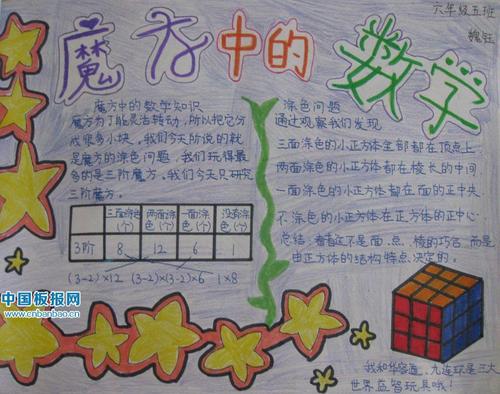 六年级五班
魏钰
魔方中的数学
魔方中的数学知识
魔方为了能灵活转动,所以把它分
成很多小块。我们今天所说的就
是魔方的涂色问题,我们玩得最
多的是三阶魔方。我们今天只研究
三阶魔方。
三面涂色(个) 两面涂色(个) 一面涂色(个) 没有涂色(个)
3阶 8 12 6 1
(3-2)×12 (3-2)×(3-2)×6 1×8
涂色问题
通过观察我们发现
三面涂色的小正方体全部都在顶点上
两面涂色的小正方体都在棱长的中间
一面涂色的小正方体都在面的正中央
不涂色的小正方体在正方体的正中心.
总结:看看这不是面、点、棱的巧合 而是
由正方体的结构特点决定的。
我和华容道、九连环是三大
世界益智玩具哦!
中国板报网
www.cnbanbao.cn